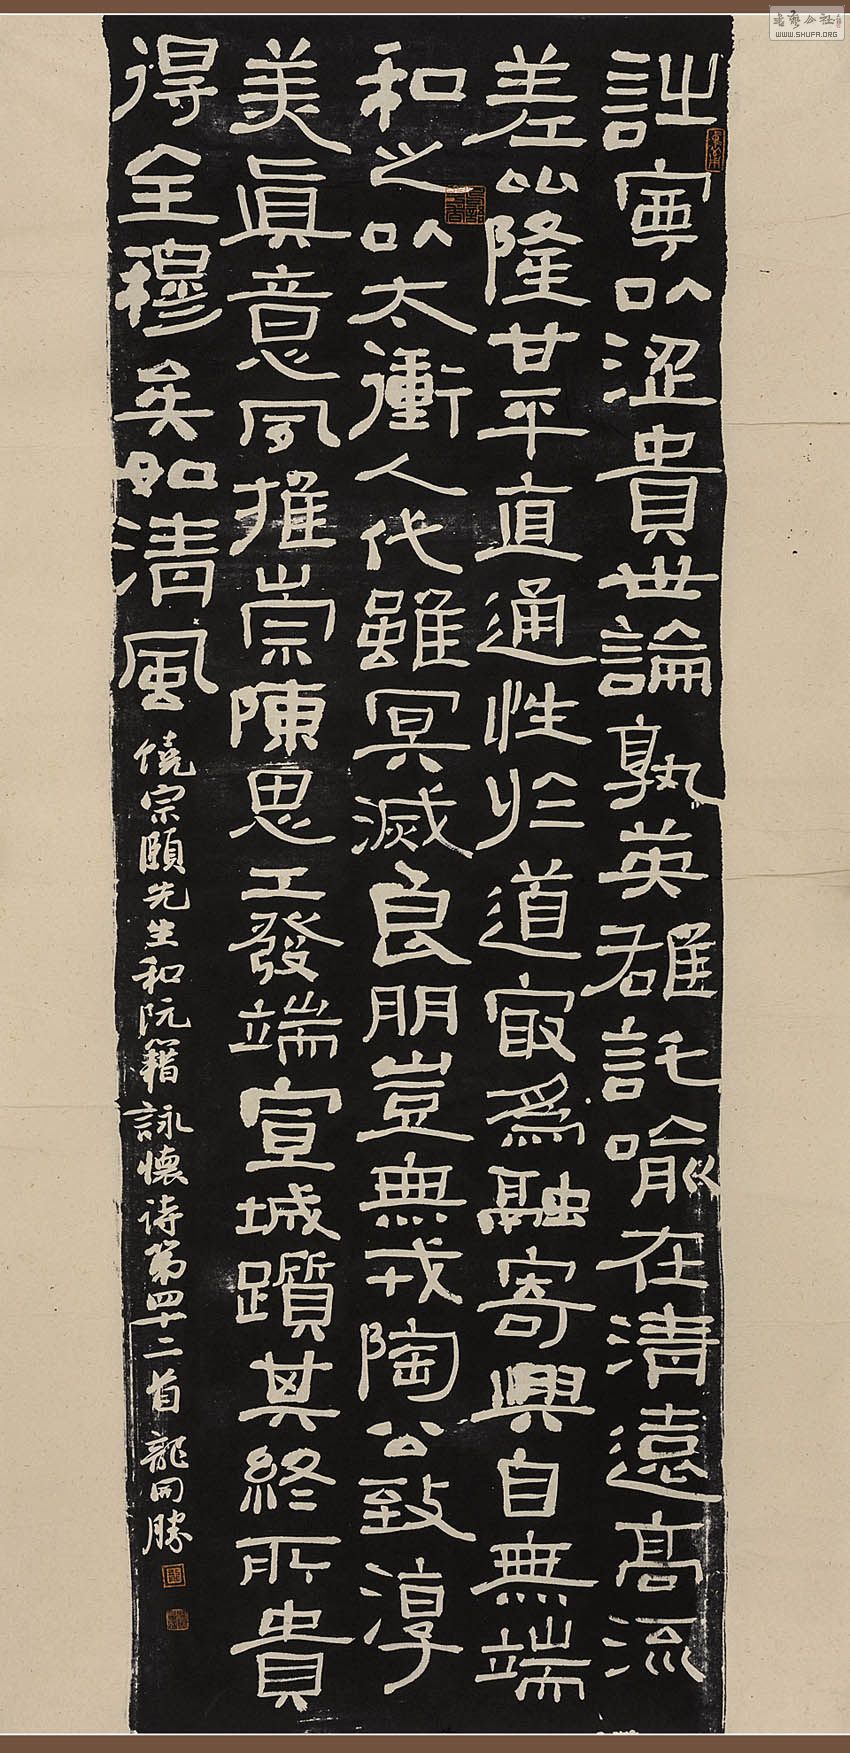 詩寧以涩貴世論孰英雄託喻在清遠高流
差比隆甘平直通性於道冣為融寄興自無端
和之以太衝人代雖冥滅良朋豈無戎陶公致淳
美眞意夙推崇陳思工發端宣城躓其終所貴
得全穆矣如清風
饒宗頤先生和阮籍詠懷詩第四十二首 龍開勝
WWW.SHUFA.ORG